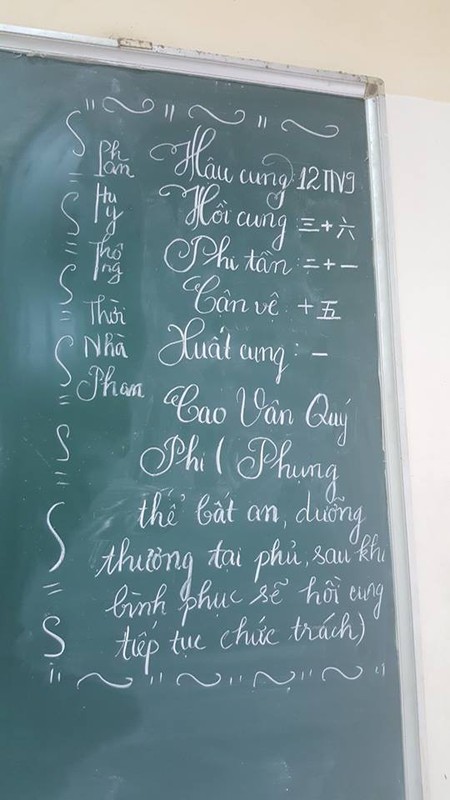 Hậu cung: 12TN9
Hồi cung 三十六
Phi tần: 二十一
Cận vệ 十五
Xuất cung: 一
Cao Vân Quý
Phi ( Phụng
thể bất an, dưỡng
thương tại phủ, sau khi
bình phục sẽ hồi cung
tiếp tục chức trách)
Hu
y
Thô
ng
Thời
Nhà
Phan